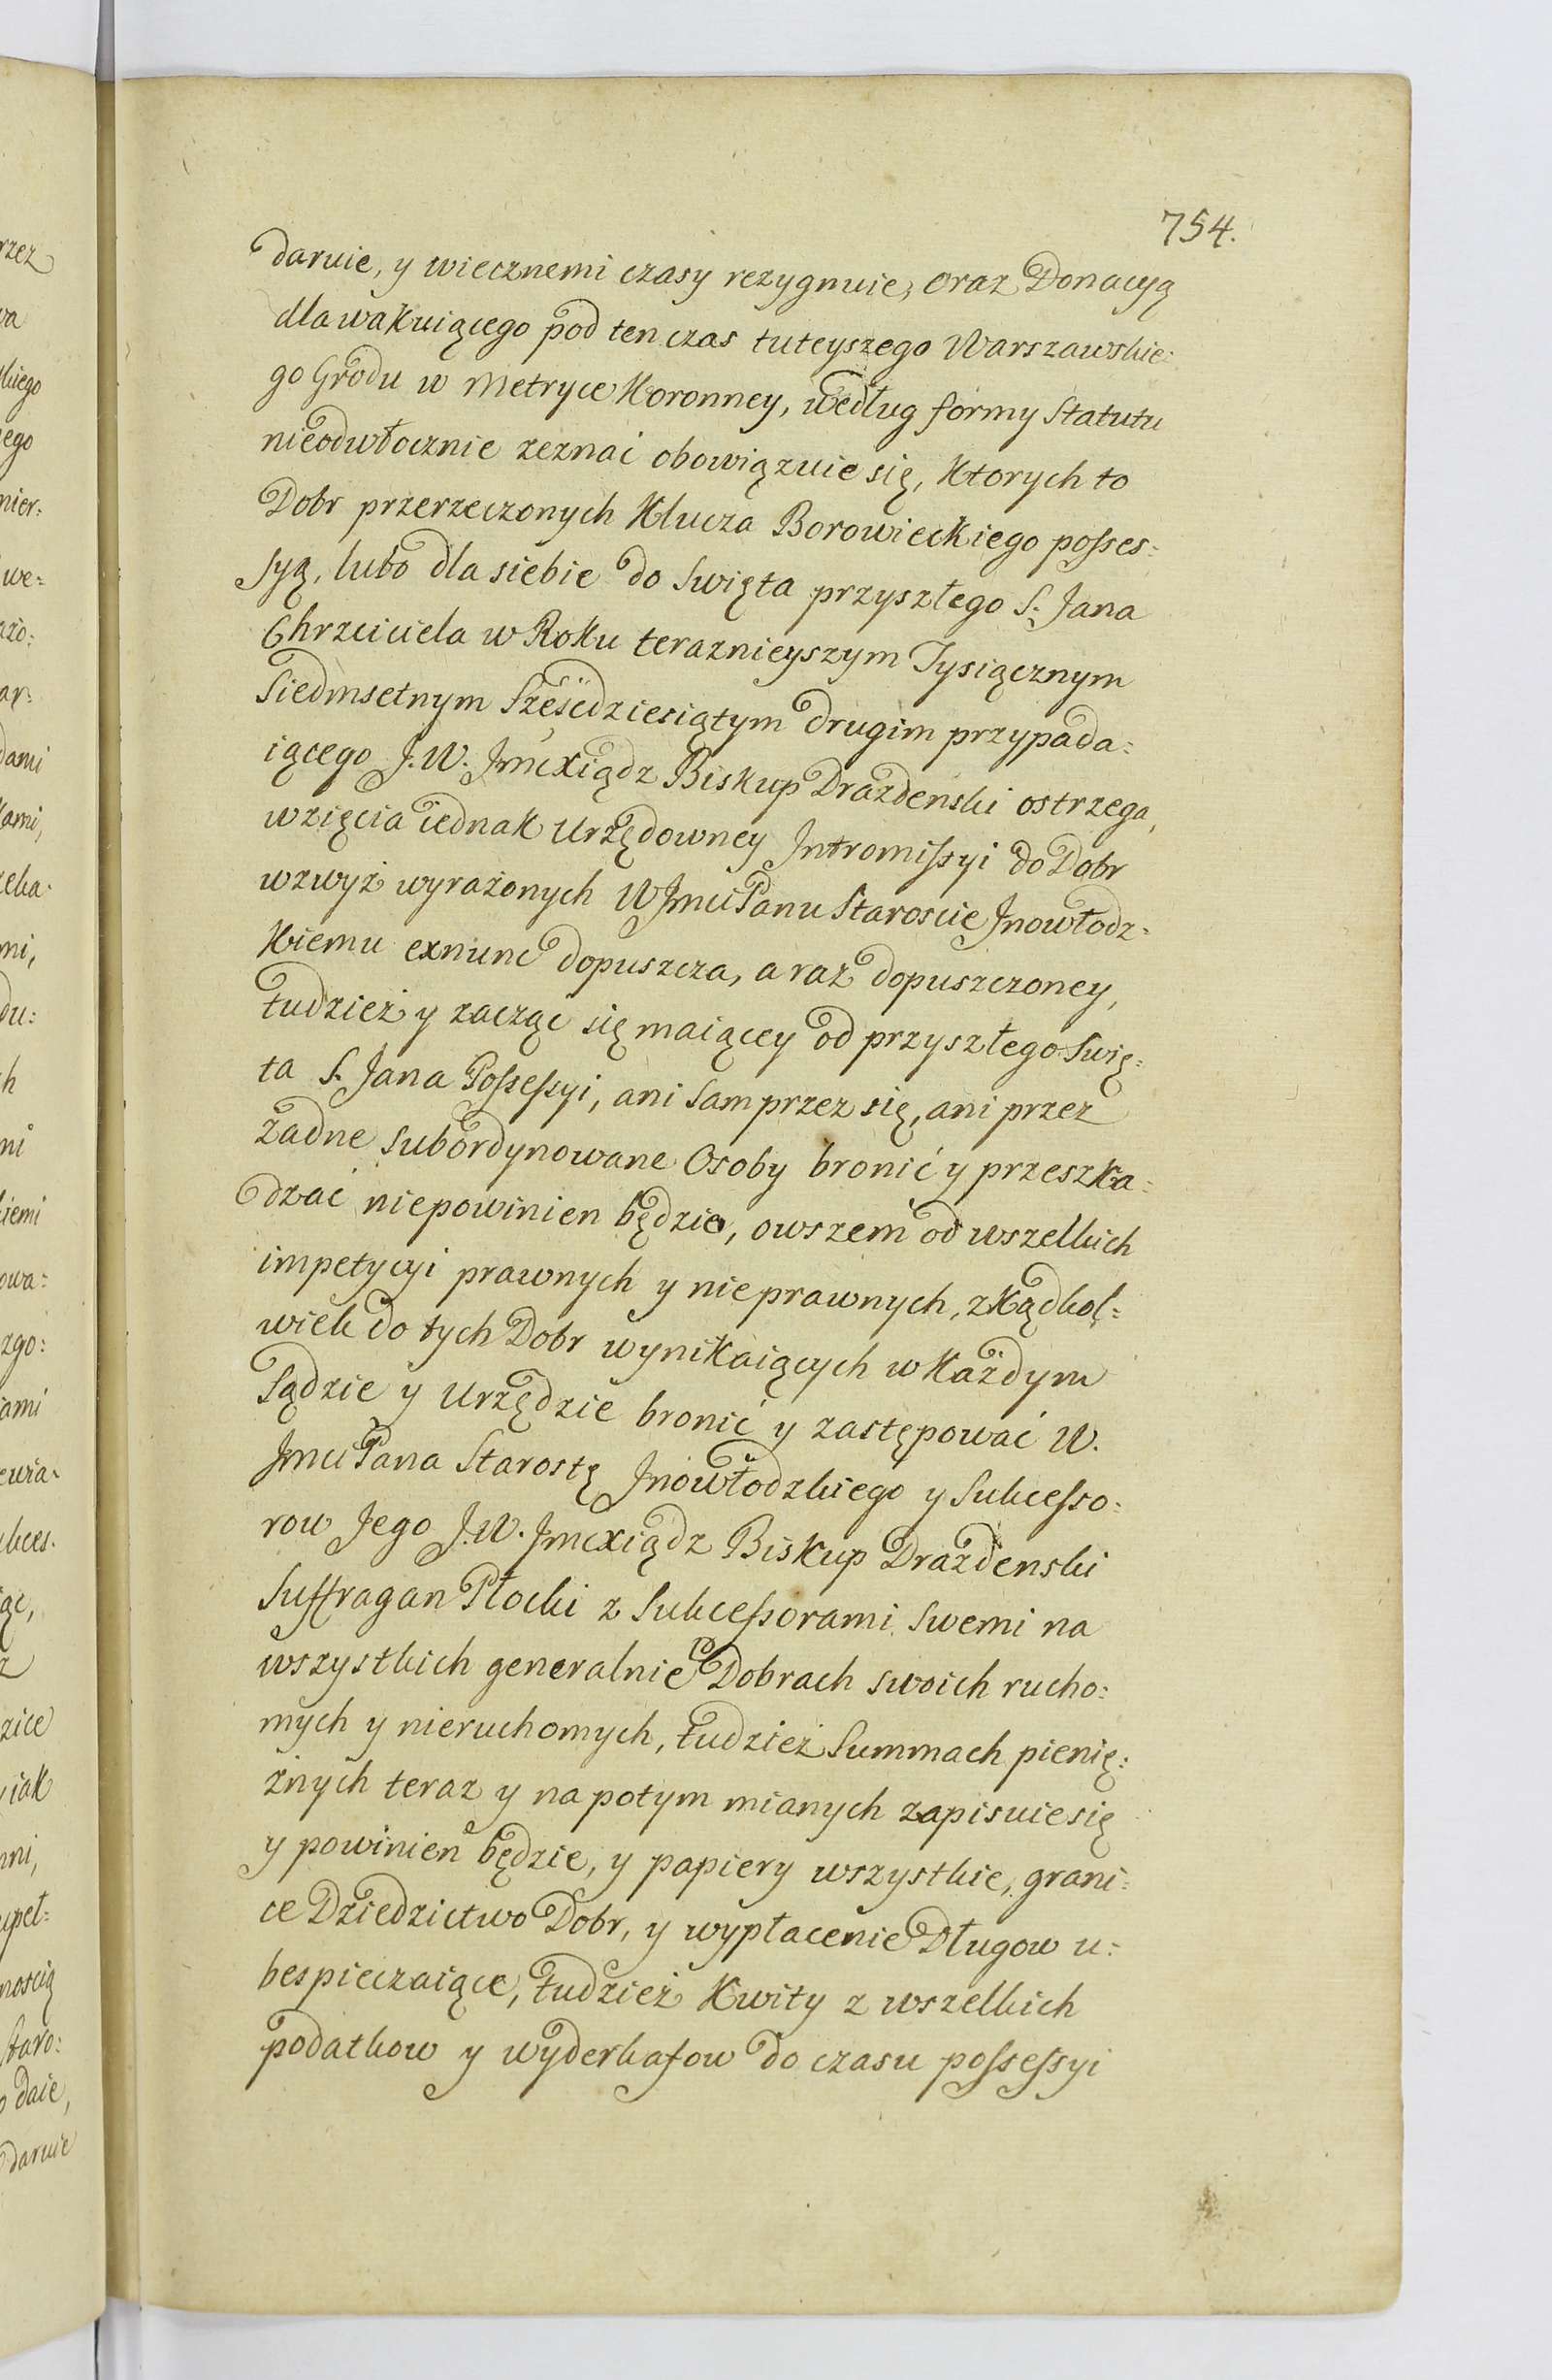 754.
daruie, y wiecznemi czasy rezygnuie, oraz Donacyą
dla wakuiącego pod ten czas tuteyszego Warszawskie:
go Grodu w Metryce Koronney, według formy Statutu
nieodwłocznie zeznać obowiązuie się, Ktorych to
Dobr przerzeczonych Klucza Borowieckiego posses:
syą, lubo dla siebie do Swięta przyszłego S. Jana
Chrzciciela w Roku teraznieyszym Tysiącznym
Siedmsetnym Sześćdziesiątym drugim przypada:
iącego J.W. Jmcxiądz Biskup Drazdenski ostrzega,
wzięcia iednak Urzędowney Intromissyi do Dobr
wzwyż wyrażonych WJmci Panu Staroscie Inowłodz:
Kiemu exnunc dopuszcza, a raz dopuszczoney,
tudzież y zacząc się maiącey od przyszłego Swię:
ta S. Jana Possessyi, ani Sam przez się, ani przez
żadne Subordynowane Osoby bronić y przeszka:
dzać niepowinien będzie, owszem od wszelkich
impetycyi prawnych y nieprawnych, zkądkol:
wiek do tych Dobr wynikaiących w Każdym
Sądzie y Urzędzie bronić y zastępować W.
Jmci Pana Starostę Inowłodzkiego y Sukcesso:
row Jego J.W. Jmcxiądz Biskup Drazdenski
Suffragan Płocki z Sukcessorami Swemi na
wszystkich generalnie Dobrach swoich rucho:
mych y nieruchomych, tudzież Summach pienię:
żnych teraz y na potym mianych zapisuie się
y powinien będzie, y papiery wszystkie, grani:
ce Dziedzictwo Dobr, y wypłacenie Długow u:
bespieczaiące, tudzież Kwity z wszelkich
podatkow y wyderkafow do czasu possessyi